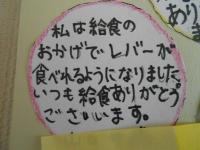 私は給食の
おかげでレバーが
食べれるようになりました。
いつも給食ありがとう
ございます。
あり
ま